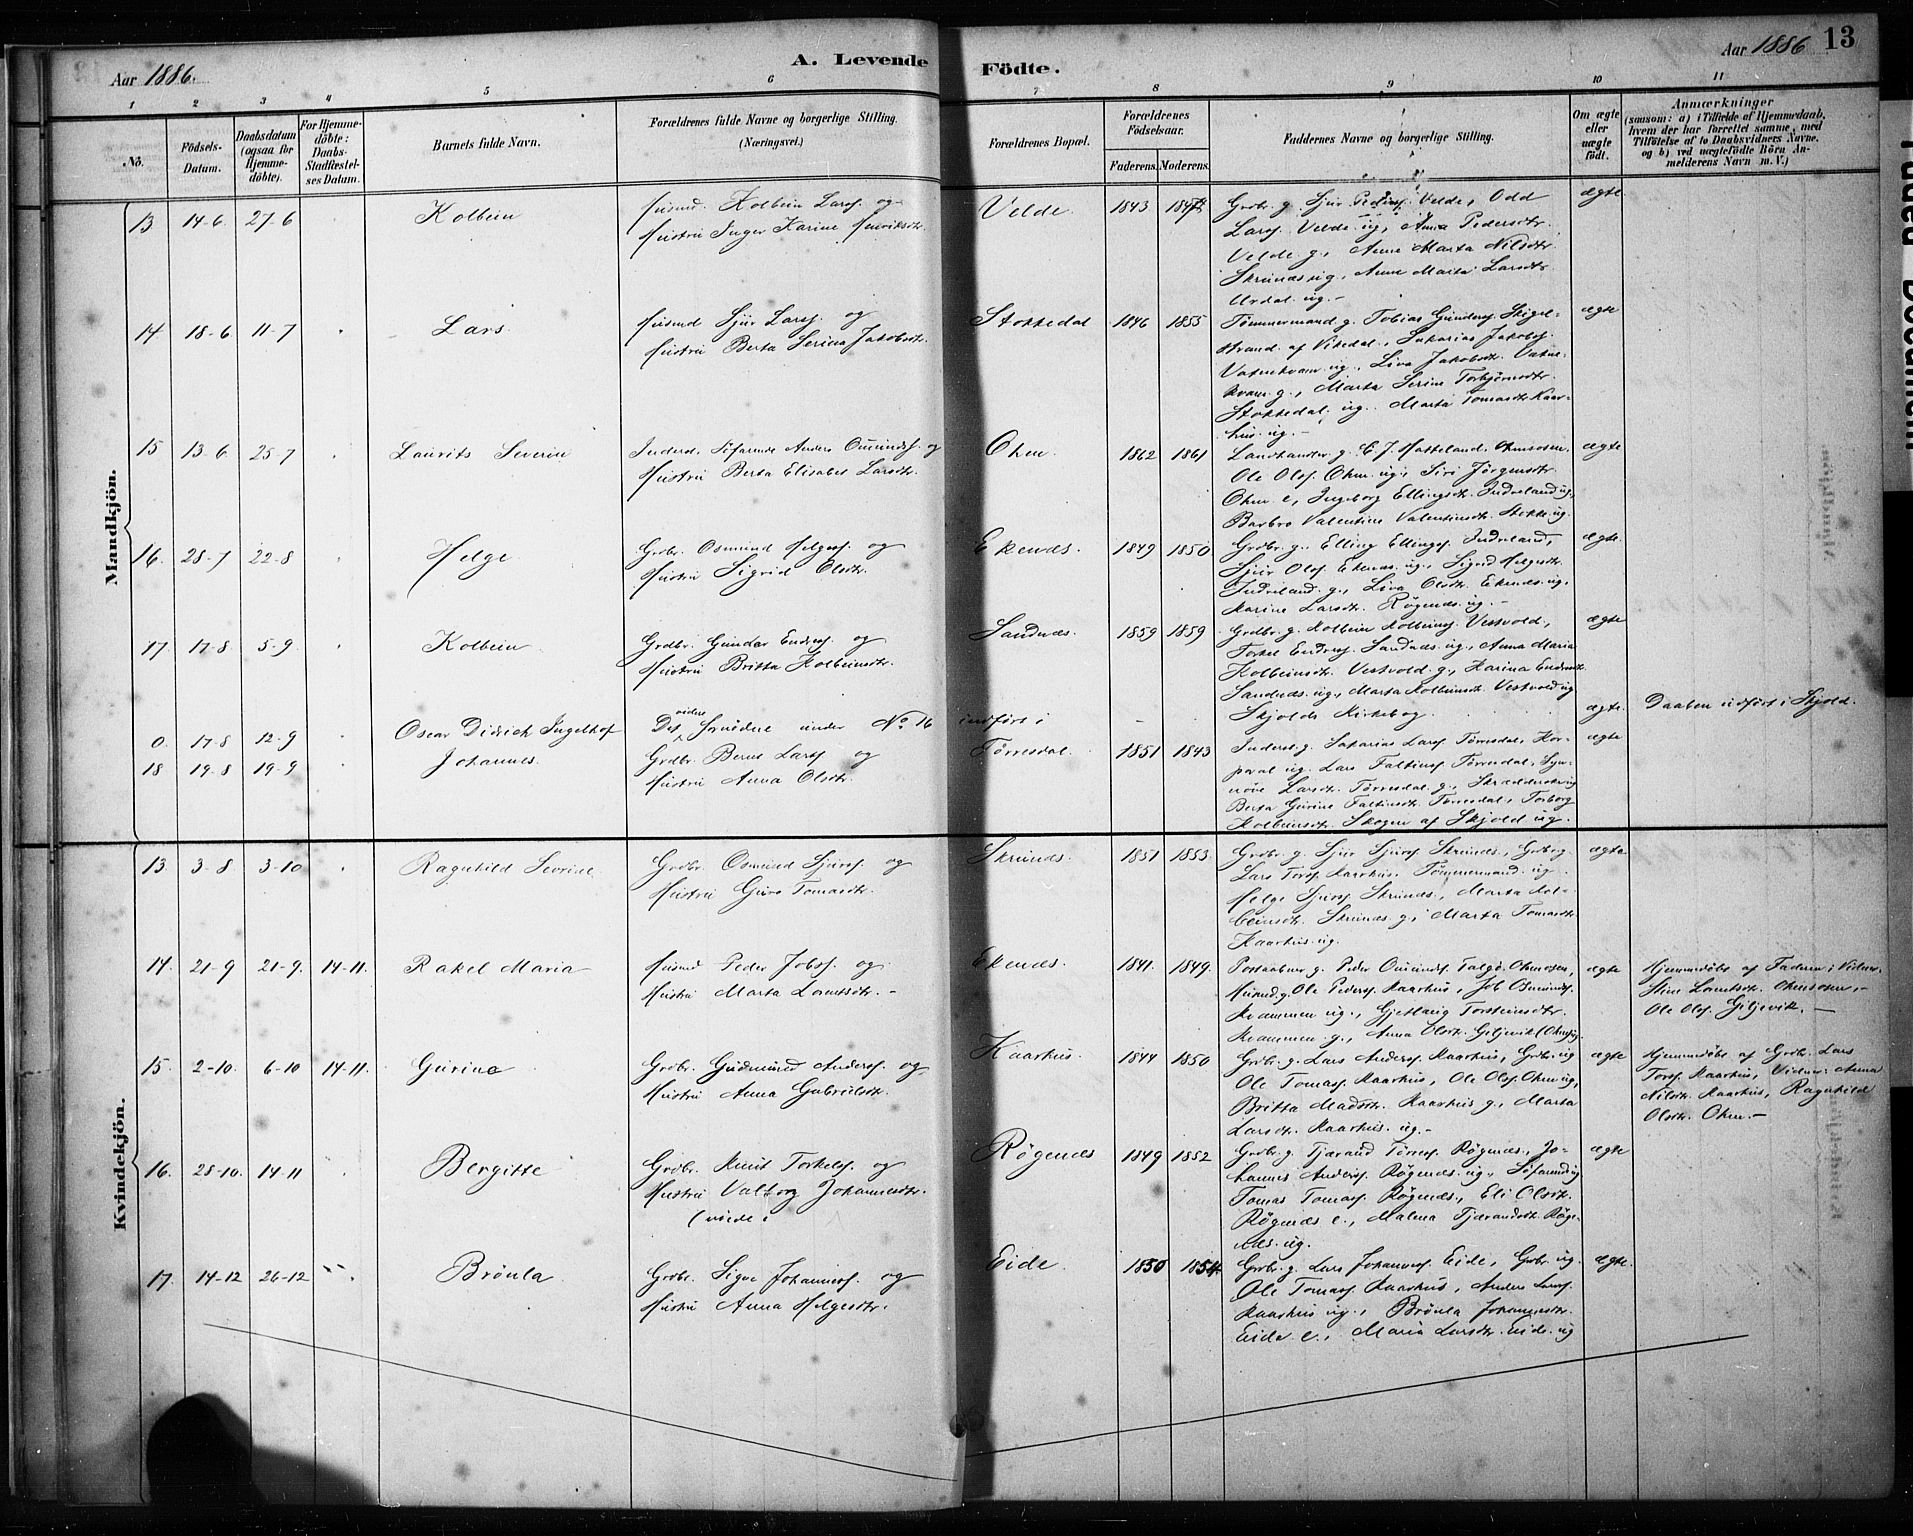 Aar 1886.
A. Levende Födte.
Aar 1886
13
1 2 3 4 5 6 7 8 9 10 11
Nö.
Födsels-Datum.
Daabsdatum (ogsaa för Hjemmedöbte).
For Hjemmedöbte: Daabs-Stadfæstelses Datum.
Barnets fulde Navn.
Forældrenes fulde Navne og borgerlige Stilling. (Næringsvei.)
Forældrenes Bopæl.
Forældrenes Födselsaar.
Faderens. Moderens.
Faddernes Navne og borgerlige Stilling.
Om ægte eller uægte födt.
Anmærkninger
(saasom: a) i Tilfælde af Hjemmedaab, hvem der har forrettet samme, med Tilföielse af to Daabsvidners Navne, og b) ved uægtefödte Börn Anmelderens Navn m. V.)
Mandkjön.
13 14-6 27-6 Kolbein
Husmd. Kolbein Larss. og
Hustru Inger Karine Henriksdtr.
Velde. 1843
Grdbr. g. Sjur Peders. Velde, Odd
Larss. Velde ug., Anna Pedersdtr.
Velde g., Anne Marta Nilsdtr.
Skrunæs ug., Anne Marta Larsdtr.
Urdal ug.-
ægte
14 18-6 11-7 Lars
Husmd Sjur Larss. og
Hustru Berta Serina Jakobsdtr.
Stokkedal 1846 1855
Tömmermand g. Tobias Gunderss.
strand af Vikedal, Sakarias Jakobss.
Vatnekvam ug., Liva Jakobsdtr. Vatne-
kvam g., Marta Serine Torbjörnsdtr.
Stokkedal ug. Marta Tomasdtr. Kaar-
hus ug.-
ægte
15 13-6 25-7 Laurits Severin
Inderst. Söfarende Anders Omundss. og
Hustru Berta Elisabet Larsdtr.
Ohm 1862 1861
Landhandler g. E. J. Østeland. Ohmsosen,
Ole Olss. Ohm ug., Siri Jörgensdtr.
Ohm e., Ingeborg Ellingsdtr. Indreland ug.,
Barbro Valentine Valentinsdtr. Stokke ug.
ægte
16. 28-7 22-8 Helge
Grdbr. Osmund Helgess. og
Hustru Sigrid Olsdtr.
Ekenæs. 1849 1850
Grdbr. g. Elling Ellingss. Indreland,
Sjur Olss. Ekenæs ug., Sigrid Helgesdtr.
Indreland g., Liva Olsdtr. Ekenæs ug.,
Karine Larsdtr. Røgenæs ug.-
ægte.
17. 17-8 5-9 Kolbein
Grdbr. Gunder Endress. og
Hustru Britta Kolbeinsdtr.
Sandnæs. 1859 1859
Grdbr. g. Kolbein Kolbeinss. Vestvold,
Torkel Endress. Sandnæs ug., Anna Maria
Kolbeinsdtr. Vestvold g., Karina Endresdtr.
Sandnæs ug., Marta Kolbeinsdtr. Vestvold ug
ægte
0. 17-8 12-9 Oscar Didrich Ingelhof
Det videre under No 16 indført i
Skjolds Kirkebog.
ægte. Daaben udført i Skjold.
18 19-8 19-9 Johannes.
Grdbr. Bernt Larss. og
Hustru Anna Olsdtr.
Tørresdal. 1851 1843
Inderst g. Sakarias Larss. Tørresdal, Kor-
poral ug. Lars Faltinss. Tørresdal, Syn-
növe Larsdtr. Tørresdal g., ug
Berta Gurine Faltinsdtr. Tørresdal, Torborg
Kolbeinsdtr. Skogen af Skjold ug.
ægte
Kvindekjön.
13 3-8 3-10 Ragnhild Sevrine
Grdbr. Osmund Sjurss. og
Hustru Guro Tomasdtr.
Skrunæs. 1851 1853.
Grdbr. g. Sjur Sjurss. Skrunæs, Grdbr g.
Lars Torss. Kaarhus, Tömmermand. ug
Helge Sjurss. Skrunæs, Marta Kol-
beinsdtr. Skrunæs g., Marta Tomasdtr.
Kaarhus ug.
ægte
14. 21-9 21-9. 14-11. Rakel Maria
Husmd. Peder Jobss. og
Hustru Marta Lorntsdtr. -
Ekenæs. 1841. 1849.
Postaabner g. Peder Omundss. Talgø. Ohmsosen,
Husmd. g. Ole Pederss. Kaarhus, Job Osmundss.
Kvammen ug., Gjetlaug Torsteinsdtr.
Kvammen g., Anna Olsdtr. Giljevik (Ohm) ug.
ægte
Hjemmedøbt af Faderen; Vidner:
Stine Lorntsdtr. Ohmsosen,-
Ole Olss. Giljevik.-
15. 2-10. 6-10 14-11. Gurine
Grdbr. Gudmund Anderss. og
Hustru Anna Gabrielsdtr.
Kaarhus. 1844 1850
Grdbr. g. Lars Anderss. Kaarhus, Grdbr. ug
Ole Tomass. Kaarhus, Ole Olss. Ohm ug.,
Britta Madsdtr. Kaarhus g., Marta
Larsdtr. Kaarhus. ug.-
ægte
Hjemmedøbt af Grdbr. Lars
Torss. Kaarhus, Vidner: Anna
Nilsdtr. Kaarhus, Ragnhild
Olsdtr. Ohm.-
16. 28-10. 14-11 Bergitte
Grdbr. Knut Torkelss. og
Hustru Valborg Johannesdtr.
Røgenæs 1849 1852
Grdbr. g. Tjærand Tørress. Røgenæs. Jo-
hannes Anderss. Røgenæs. ug., Söfarende ug
Tomas Tomass. Røgenæs., Eli Olsdtr.
Røgenæs e., Malena Tjærandsdtr. Røge-
næs. ug.
ægte
17. 14-12 26-12 Brönla
Grdbr. Sigve Johanness. og
Hustru Anna Helgesdtr.
Eide. 1850 1854.
Grdbr. g. Lars Johanness. Eide, Grdbr ug
Ole Tomass. Kaarhus, Anders Larss.
Kaarhus ug., Brönla Johannesdtr.
Eide e., Maria Larsdtr. Eide. ug
ægte.